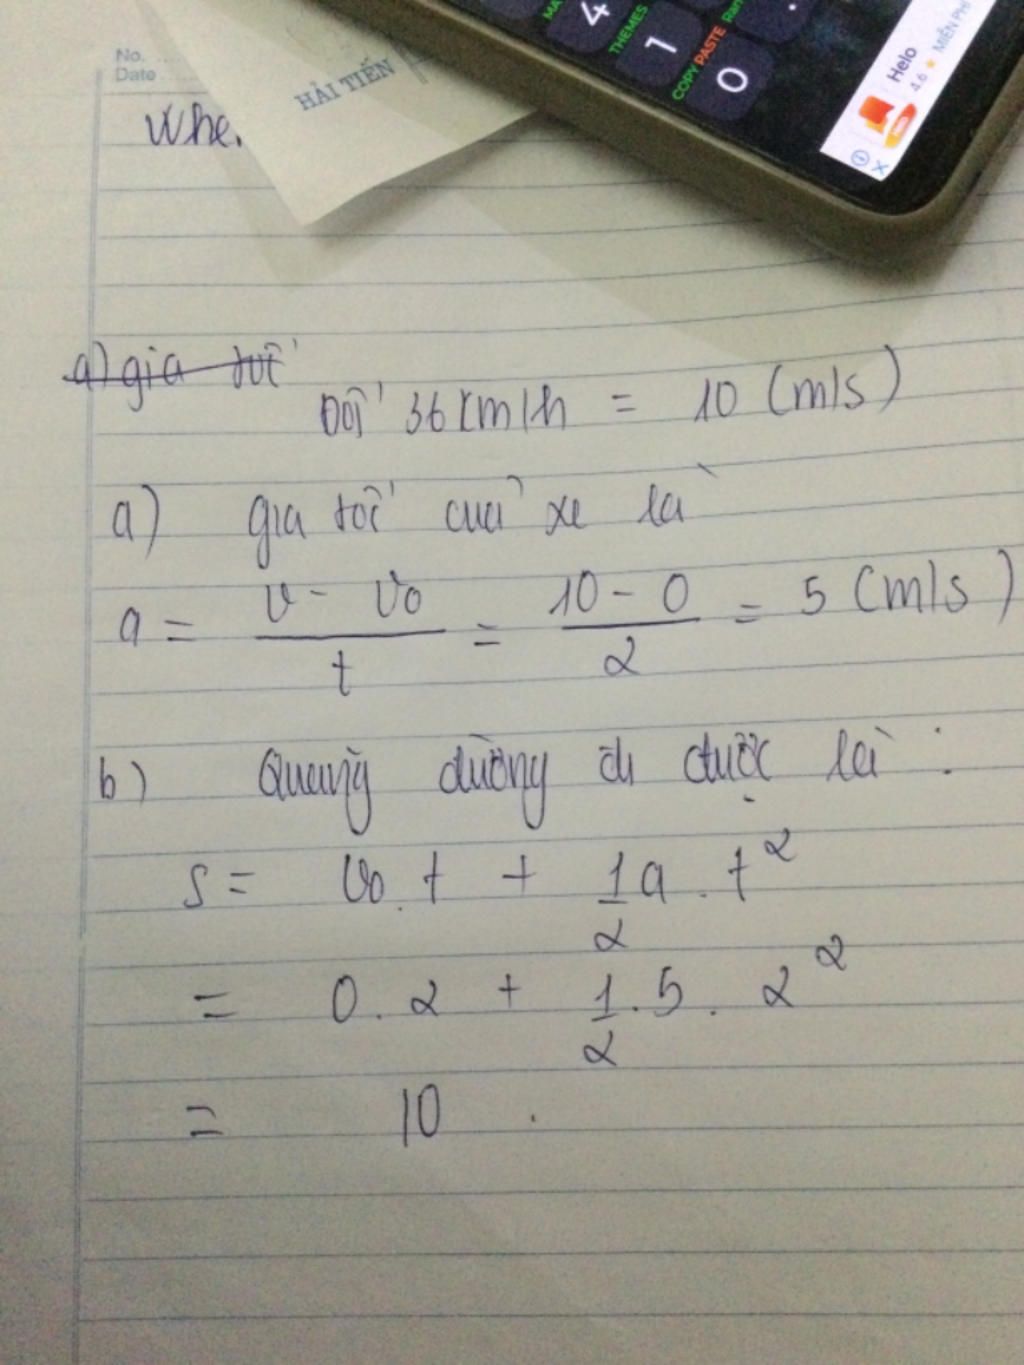 No.
Date
HẢI TIẾN
MA
4
THEMES
1
COPY PASTE Ran
0
Helo
4.6 ★ MIỄN PHÍ
Whe.
a) gia tốc
Đổi 36 km/h = 10 (m/s)
a) gia tốc của xe là
a = v - v0 / t = 10 - 0 / 2 = 5 (m/s)
b) Quãng đường đi được là :
s = v0. t + 1/2 a . t²
= 0. 2 + 1/2 . 5 . 2²
= 10 .